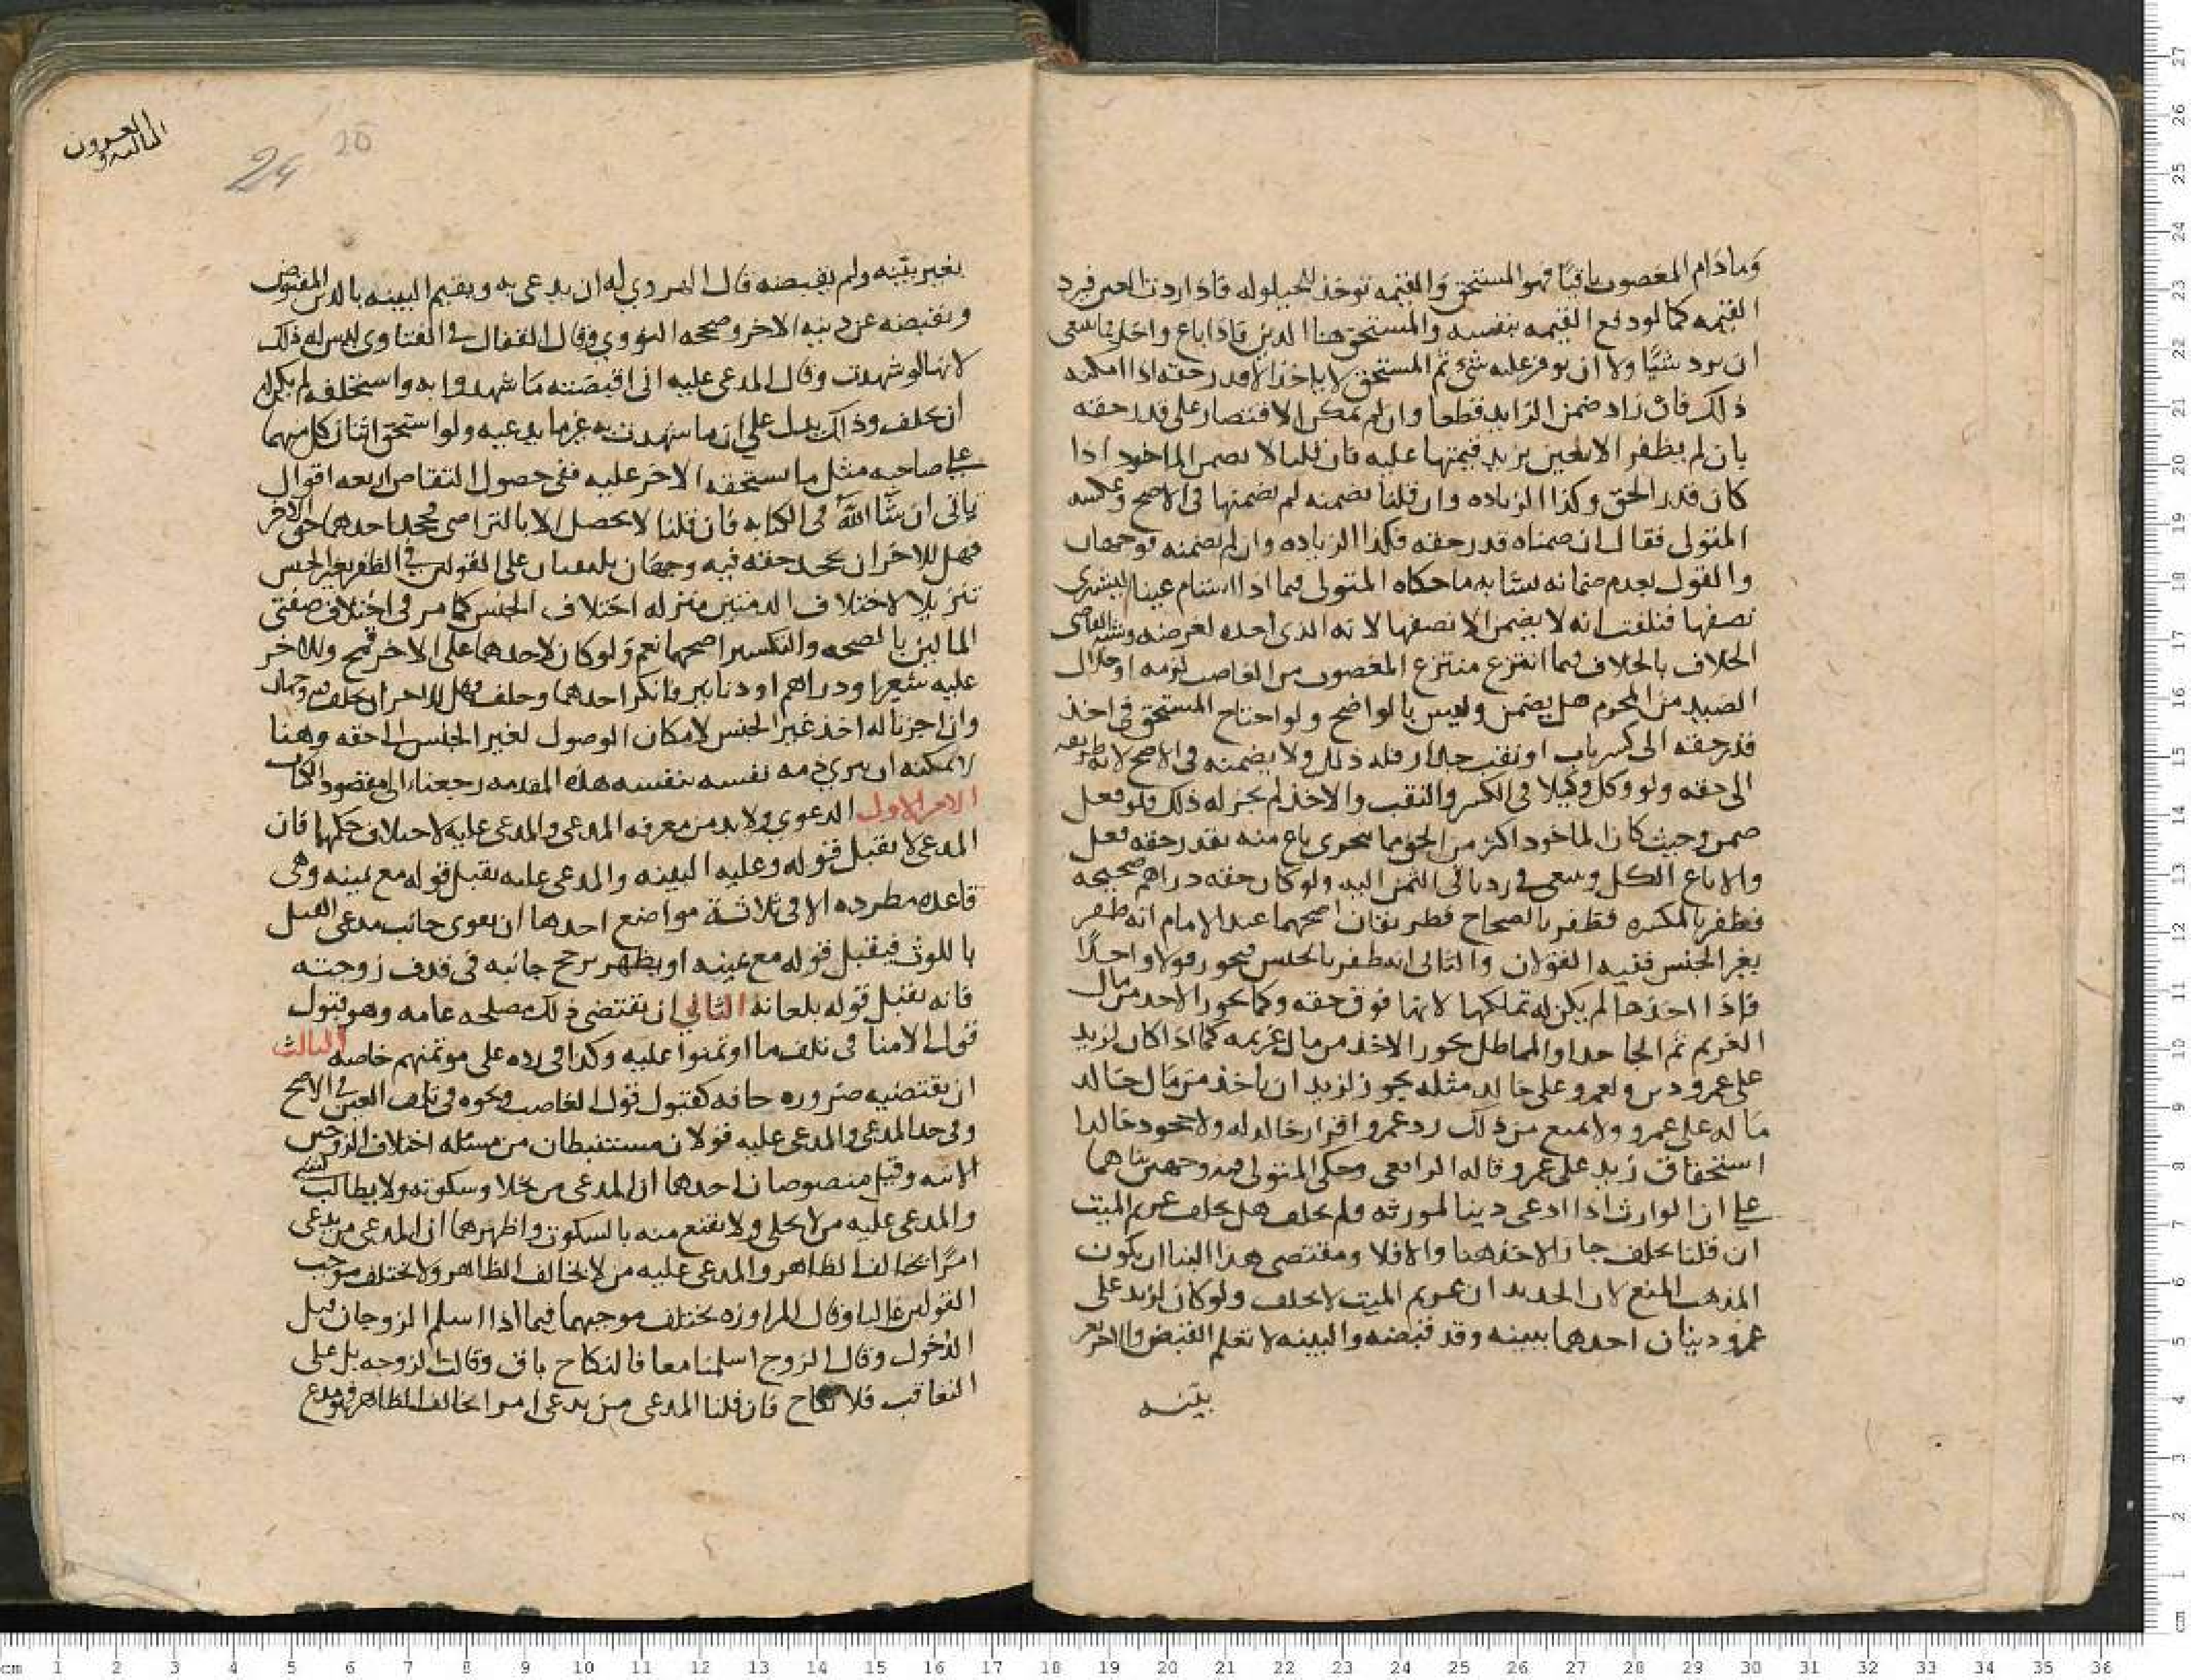 وما دام المغصوب باقيا فهو المستحق والقيمه توخذ للحيلوله فاذا ردت العين فيرد
القيمه كما لو دفع القيمه بنفسه والمستحق هنا الدين فاذا باع واخذ فما ينبغي
ان يرد شيئا ولا ان يوفر عليه شي ثم المستحق لا ياخذ الا قدر حقه اذا امكنه
ذلك فان زاد ضمن الزايد قطعا وان لم يمكن الاقتصار على قدر حقه
بان لم يظفر الا بعين يزيد قيمتها عليه فان قلنا لا يضمن الماخود اذا
كان قدر الحق وكذا الزياده وان قلنا نضمنه لم يضمنها في الاصح وعكسه
المتولي فقال ان ضمناه قدر حقه فكذا الزياده وان لم يضمنه فوجهان
والقول بعدم ضمانه شابه ما حكاه المتولي فيما اذا استام عينا ليشتري
نصفها فتلفت انه لا يضمن الا نصفها لانه الذي اخده لغرضه وشبه القاضي
الخلاف بالخلاف فيما انتزع منتزع المغصوب من الغاصب لزمه او حلال
الصيد من المحرم هل يضمن وليس بالواضح ولو احتاج المستحق في اخذ
قدر حقه الى كسر باب او نقب جدار فله ذلك ولا يضمنه في الاصح لانه طريقه
الى حقه ولو وكل وكيلا في الكسر والنقب والاخذ لم يجز له ذلك فلو فعل
ضمن وحيث كان الماخود اكثر من الحق مما يتجزي باع منه بقدر حقه فعل
والا باع الكل وسعى في رد باقي الثمن اليه ولو كان حقه دراهم صحيحه
فظفر بالمكسره فظفر بالصحاح فطريقان اصحهما عند الامام انه ظفر
بغير الجنس ففيه القولان والثاني انه ظفر بالجنس فيجوز قولا واحدا
فاذا اخذها لم يكن له تملكها لانها فوق حقه وكما يجوز الاخد من مال
الغريم ثم الجاحد او المماطل يجوز الاخذ من مال غريمه كما اذا كان لزيد
على عمرو دين ولعمرو على خالد مثله يجوز لزيد ان ياخذ من مال خالد
ماله على عمرو ولا يمنع من ذلك رد عمرو اقرار خالد له ولا جحود خالدا
استحقاق زيد على عمرو قاله الرافعي وحكى المتولي فيه وجهين بناهما
على ان الوارث اذا ادعى دينا لمورثه ولم يحلف هل يحلف غريم الميت
ان قلنا يحلف جاز الاخذ هنا والا فلا ومقتضى هذا البنا ان يكون
المذهب المنع لان الجديد ان غريم الميت لا يحلف ولو كان لزيد على
عمرو دينان احدهما ببينه وقد قبضه والبينه لا تعلم القبض والاخر بغير
بينه
الثالث والعشرون
25
24
بغير بينه ولم يقبضه قال الهروي له ان يدعي به ويقيم البينه بالدين المقبوض
ويقبضه عن دينه الاخر وصححه النووي وقال القفال في الفتاوى ليس له ذلك
لانها لو شهدت وقال المدعى عليه اني اقبضته ما شهدوا به واستحلفه لم يكن له
ان يحلف وذلك يدل على ان ما شهدت به غير ما يدعيه ولو استحق اثنان كل منهما
على صاحبه مثل ما يستحقه الاخر عليه ففي حصول التقاص اربعه اقوال
ياتي ان شا الله في الكتابه فان قلنا لا يحصل الا بالتراضي فجحد احدهما حق الاخر
فهل للاخر ان يجحد حقه فيه وجهان يلتفتان على القولين في الظفر بغير الجنس
تنزيلا لاختلاف الدمتين منزله اختلاف الجنس كما مر في اختلاف صفتي
المالين بالصحه والتكسير اصحهما نعم ولو كان لاحدهما على الاخر قمح وللاخر
عليه شعير او دراهم او دنانير فانكر احدهما وحلف فهل للاخر ان يحلف فيه وجهان
وان اجزنا له اخذ غير الجنس لامكان الوصول لغير الجنس الى حقه وهنا
لا يمكنه ان يبري ذمه نفسه بنفسه هذه المقدمه رجعنا الى مقصود الكتاب
الامر الاول الدعوى ولا بد من معرفه المدعي والمدعى عليه لاختلاف حكمهما فان
المدعي لا يقبل قوله وعليه البينه والمدعى عليه يقبل قوله مع يمينه وهي
قاعده مطرده الا في ثلاثة مواضع احدها ان يقوى جانب مدعي القتل
باللوث فيقبل قوله مع يمينه او يظهر ترجح جانبه في قذف زوجته
فانه يقبل قوله بلعانه الثاني ان يقتضي ذلك مصلحه عامه وهو قبول
قول الامنا في تلف ما اوتمنوا عليه وكذا في رده على موتمنهم خاصه الثالث
ان يقتضيه ضروره حاقه كقبول قول الغاصب ونحوه في تلف العين في الاصح
وفي حد المدعي والمدعى عليه قولان مستنبطان من مسئله اختلاف الزوجين
الاتيه وقيل منصوصان احدهما ان المدعي من يخلا وسكوته ولا يطالب بشي
والمدعى عليه من لا يخلى ولا يقنع منه بالسكوت واظهرهما ان المدعي من يدعي
امرا يخالف الظاهر والمدعى عليه من لا يخالف الظاهر ولا يختلف موجب
القولين غالبا وقال المراوزه يختلف موجبهما فيما اذا اسلم الزوجان قبل
الدخول وقال الزوج اسلمنا معا فالنكاح باق وقالت الزوجه بل على
التعاقب فلا نكاح فان قلنا المدعي من يدعي امرا يخالف الظاهر فهو مدع